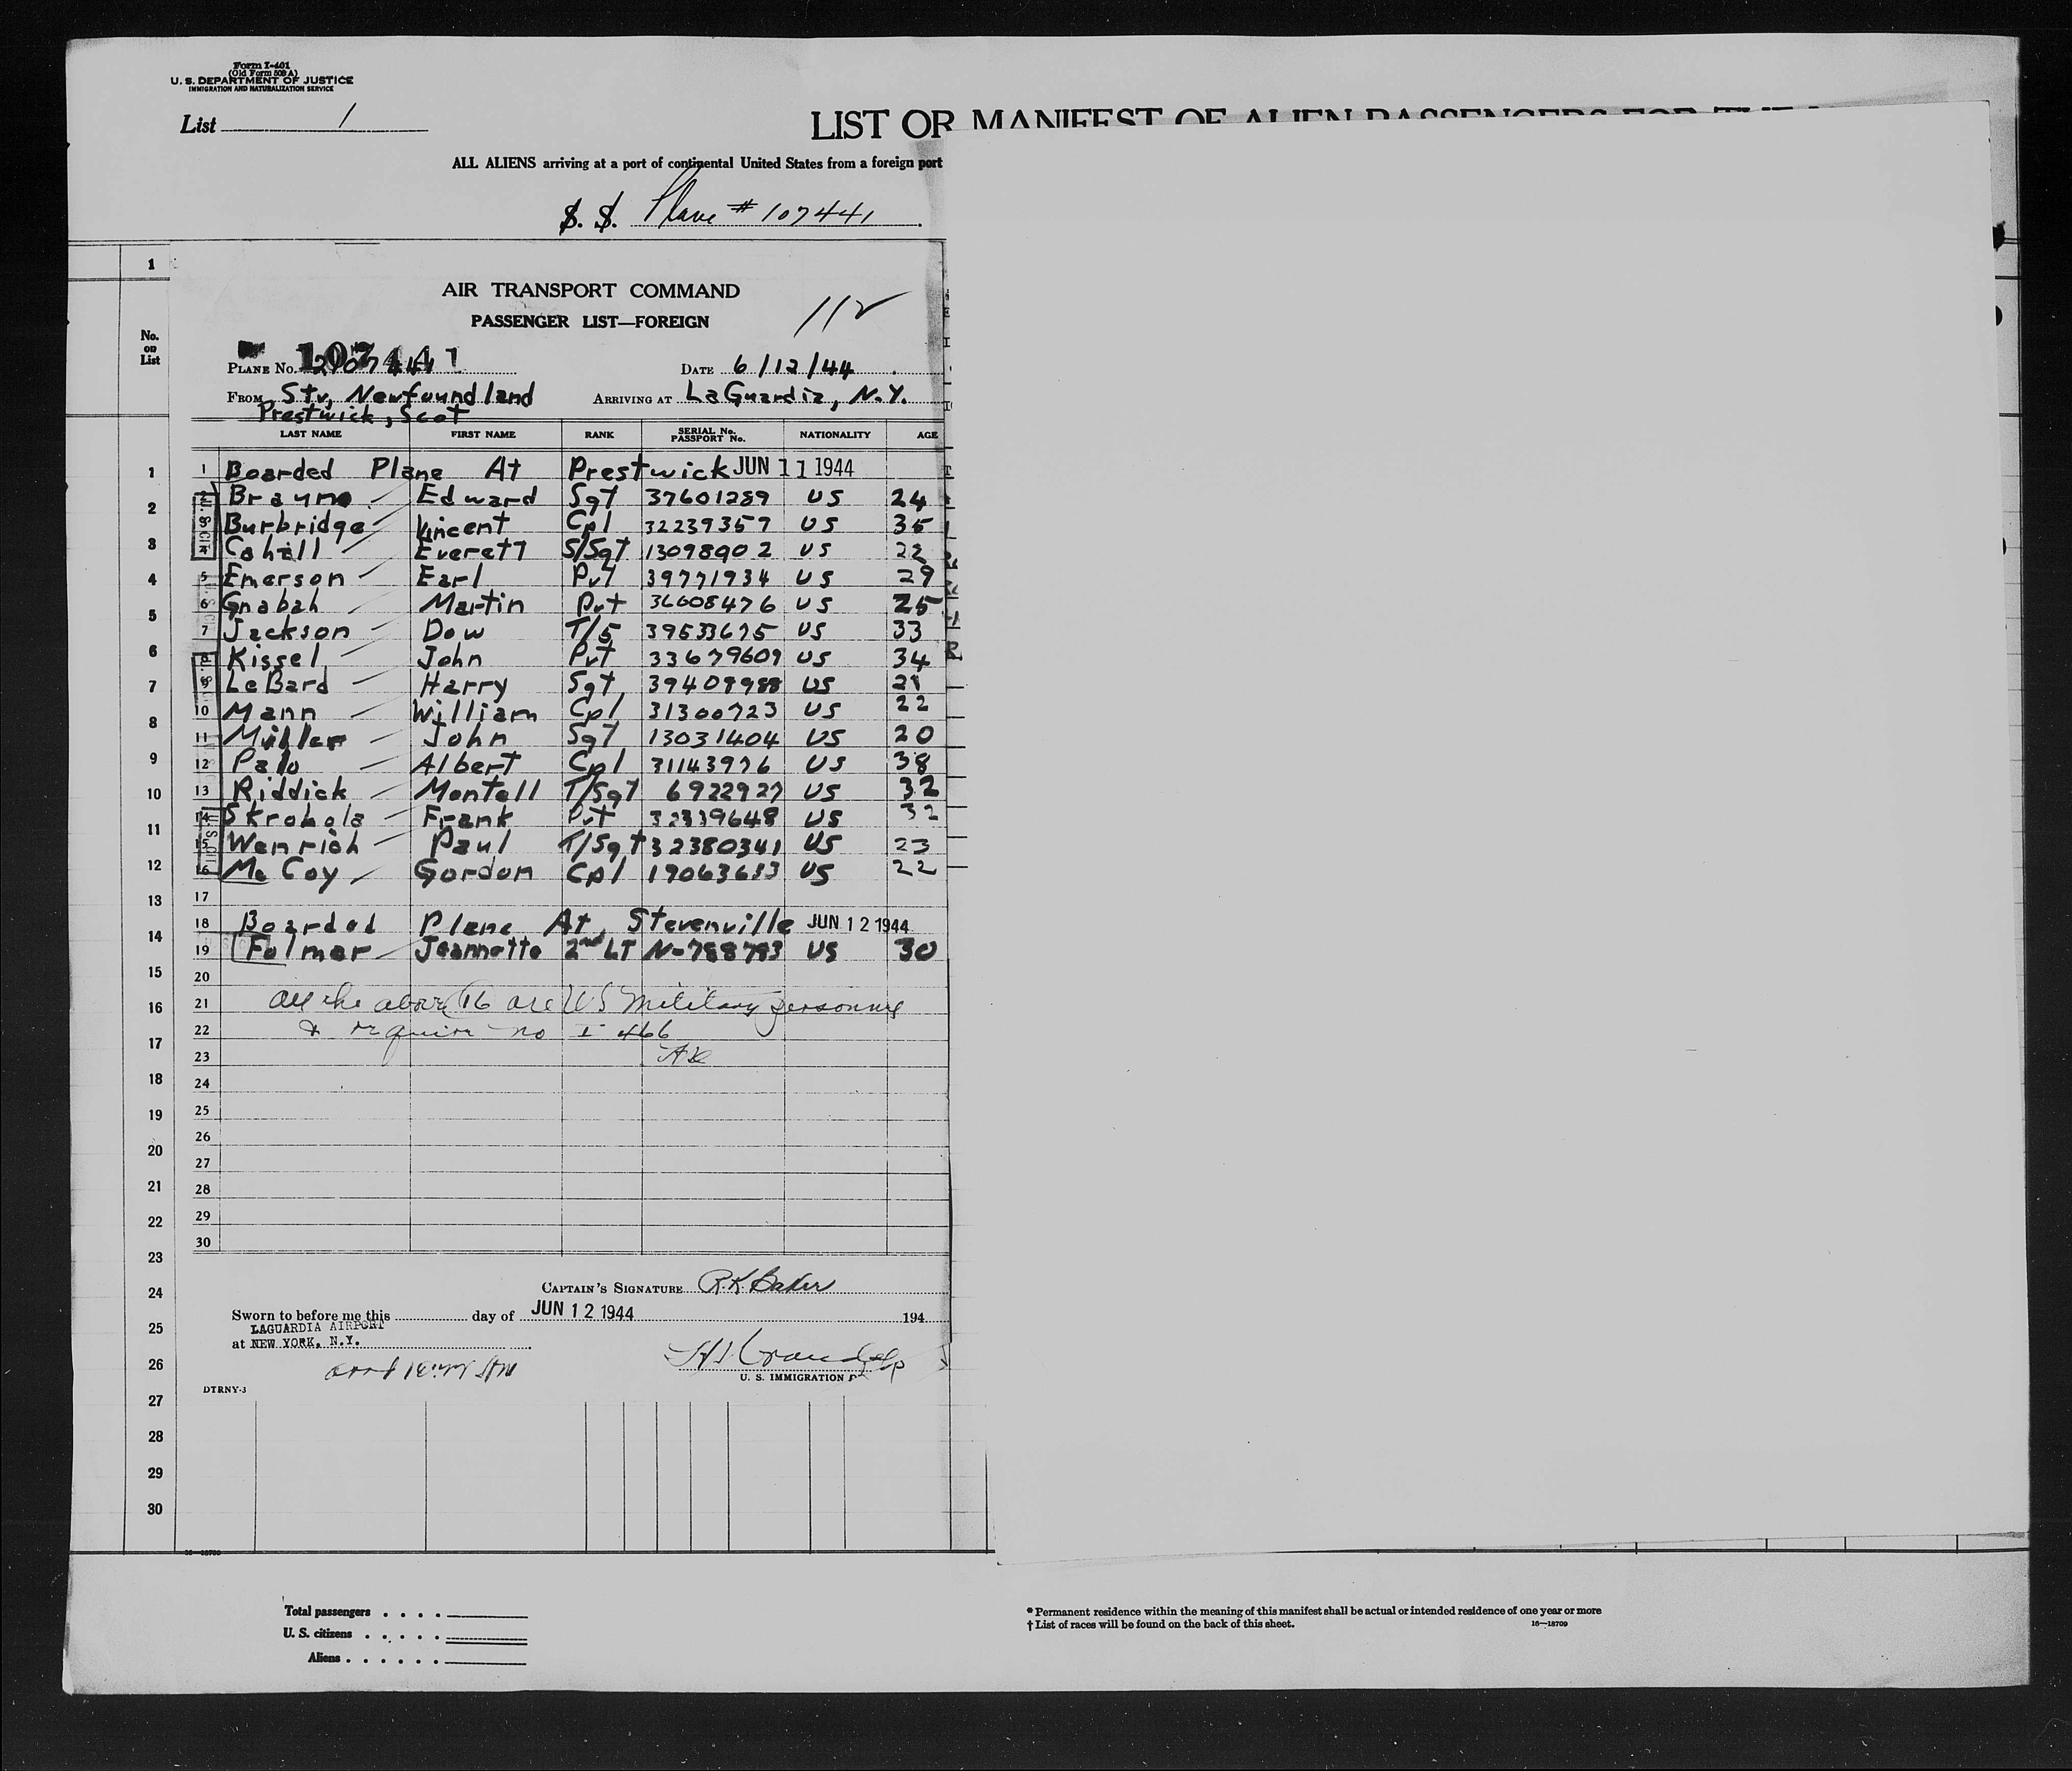 Form I-401
(Old Form 509 A)
U. S. DEPARTMENT OF JUSTICE
IMMIGRATION AND NATURALIZATION SERVICE
List 1
LIST OR MANIFEST OF ALIEN PASSENGERS FOR THE
ALL ALIENS arriving at a port of continental United States from a foreign port
S. S. Plane # 107441
1
AIR TRANSPORT COMMAND
PASSENGER LIST—FOREIGN
112
No. on List
PLANE No. 107441
DATE 6/12/44
FROM Stv, Newfoundland ARRIVING AT LaGuardia, N.Y.
Prestwick, Scot
LAST NAME FIRST NAME RANK SERIAL No. PASSPORT No. NATIONALITY AGE
1 Boarded Plane At Prestwick JUN 11 1944
2 Edward Sgt 37601289 US 24
Burbridge Vincent Cpl 32239357 US 35
4 Cahill Everett S/Sgt 13098902 US
5 Emerson Earl Pvt 39771934 US 29
6 Gnabah Martin Pvt 36608476 US 25
7 Jackson Dow T/5 39533675 US 33
8 Kissel John Pvt 33679609 US 34
9 LeBard Harry Sgt US
10 Mann William Cpl 31300723 US 22
11 Miller John Sgt 13031404 US 20
12 Palo Albert Cpl 31143976 US 38
13 Riddick Montell T/Sgt 6922927 US 32
14 Skrobola Frank Pvt 32339648 US 32
15 Wenrich Paul T/Sgt 32380341 US 23
16 Mc Coy Gordon Cpl US 22
17
18 Boarded Plane At, Stevenville JUN 12 1944
19 Folmar Jeannette 2nd LT N-788793 US 30
20
21 All the above 16 are US military personnel
22 & require no I 466
23
24
25
26
27
28
29
30
CAPTAIN'S SIGNATURE R.K. Baker
Sworn to before me this day of JUN 12 1944 194
LAGUARDIA AIRPORT
at NEW YORK, N.Y.
U. S. IMMIGRATION
DTRNY-3
1
2
3
4
5
6
7
8
9
10
11
12
13
14
15
16
17
18
19
20
21
22
23
24
25
26
27
28
29
30
Total passengers . . . .
U. S. citizens . . . . .
Aliens . . . . . .
* Permanent residence within the meaning of this manifest shall be actual or intended residence of one year or more
† List of races will be found on the back of this sheet.
16—18709